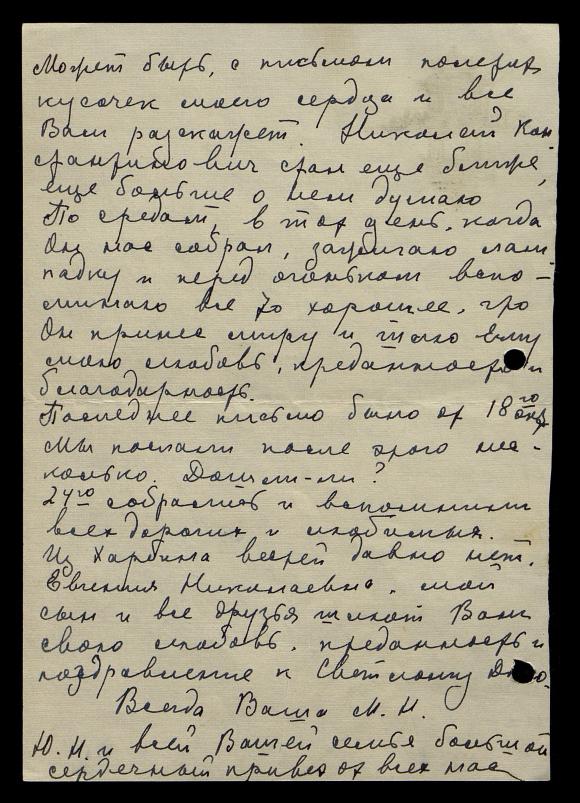 Может быть, с письмом полетит
кусочек моего сердца и все
Вам разскажет. Николай Кон
стантинович стал еще ближе,
еще больше о нем думаю
По средам, в тот день, когда
Он нас собрал, зажигаю лам
падку и перед огоньком вспо-
минаю все то хорошее, что
Он принес миру и шлю Ему
мою любовь, преданность и
благодарность.
Последнее письмо было от 18го окт
Мы послали после этого нес-
колько. Дошли-ли?
24го собрались и вспомнили
всех дорогих и любимых.
Из Харбина вестей давно нет.
Евгения Николаевна, мой
сын и все друзья шлют Вам
свою любовь, преданность и
поздравление к Светлому Дню.
Всегда Ваша М. Н.
Ю. Н. и всей Вашей семье большой
сердечный привет от всех нас